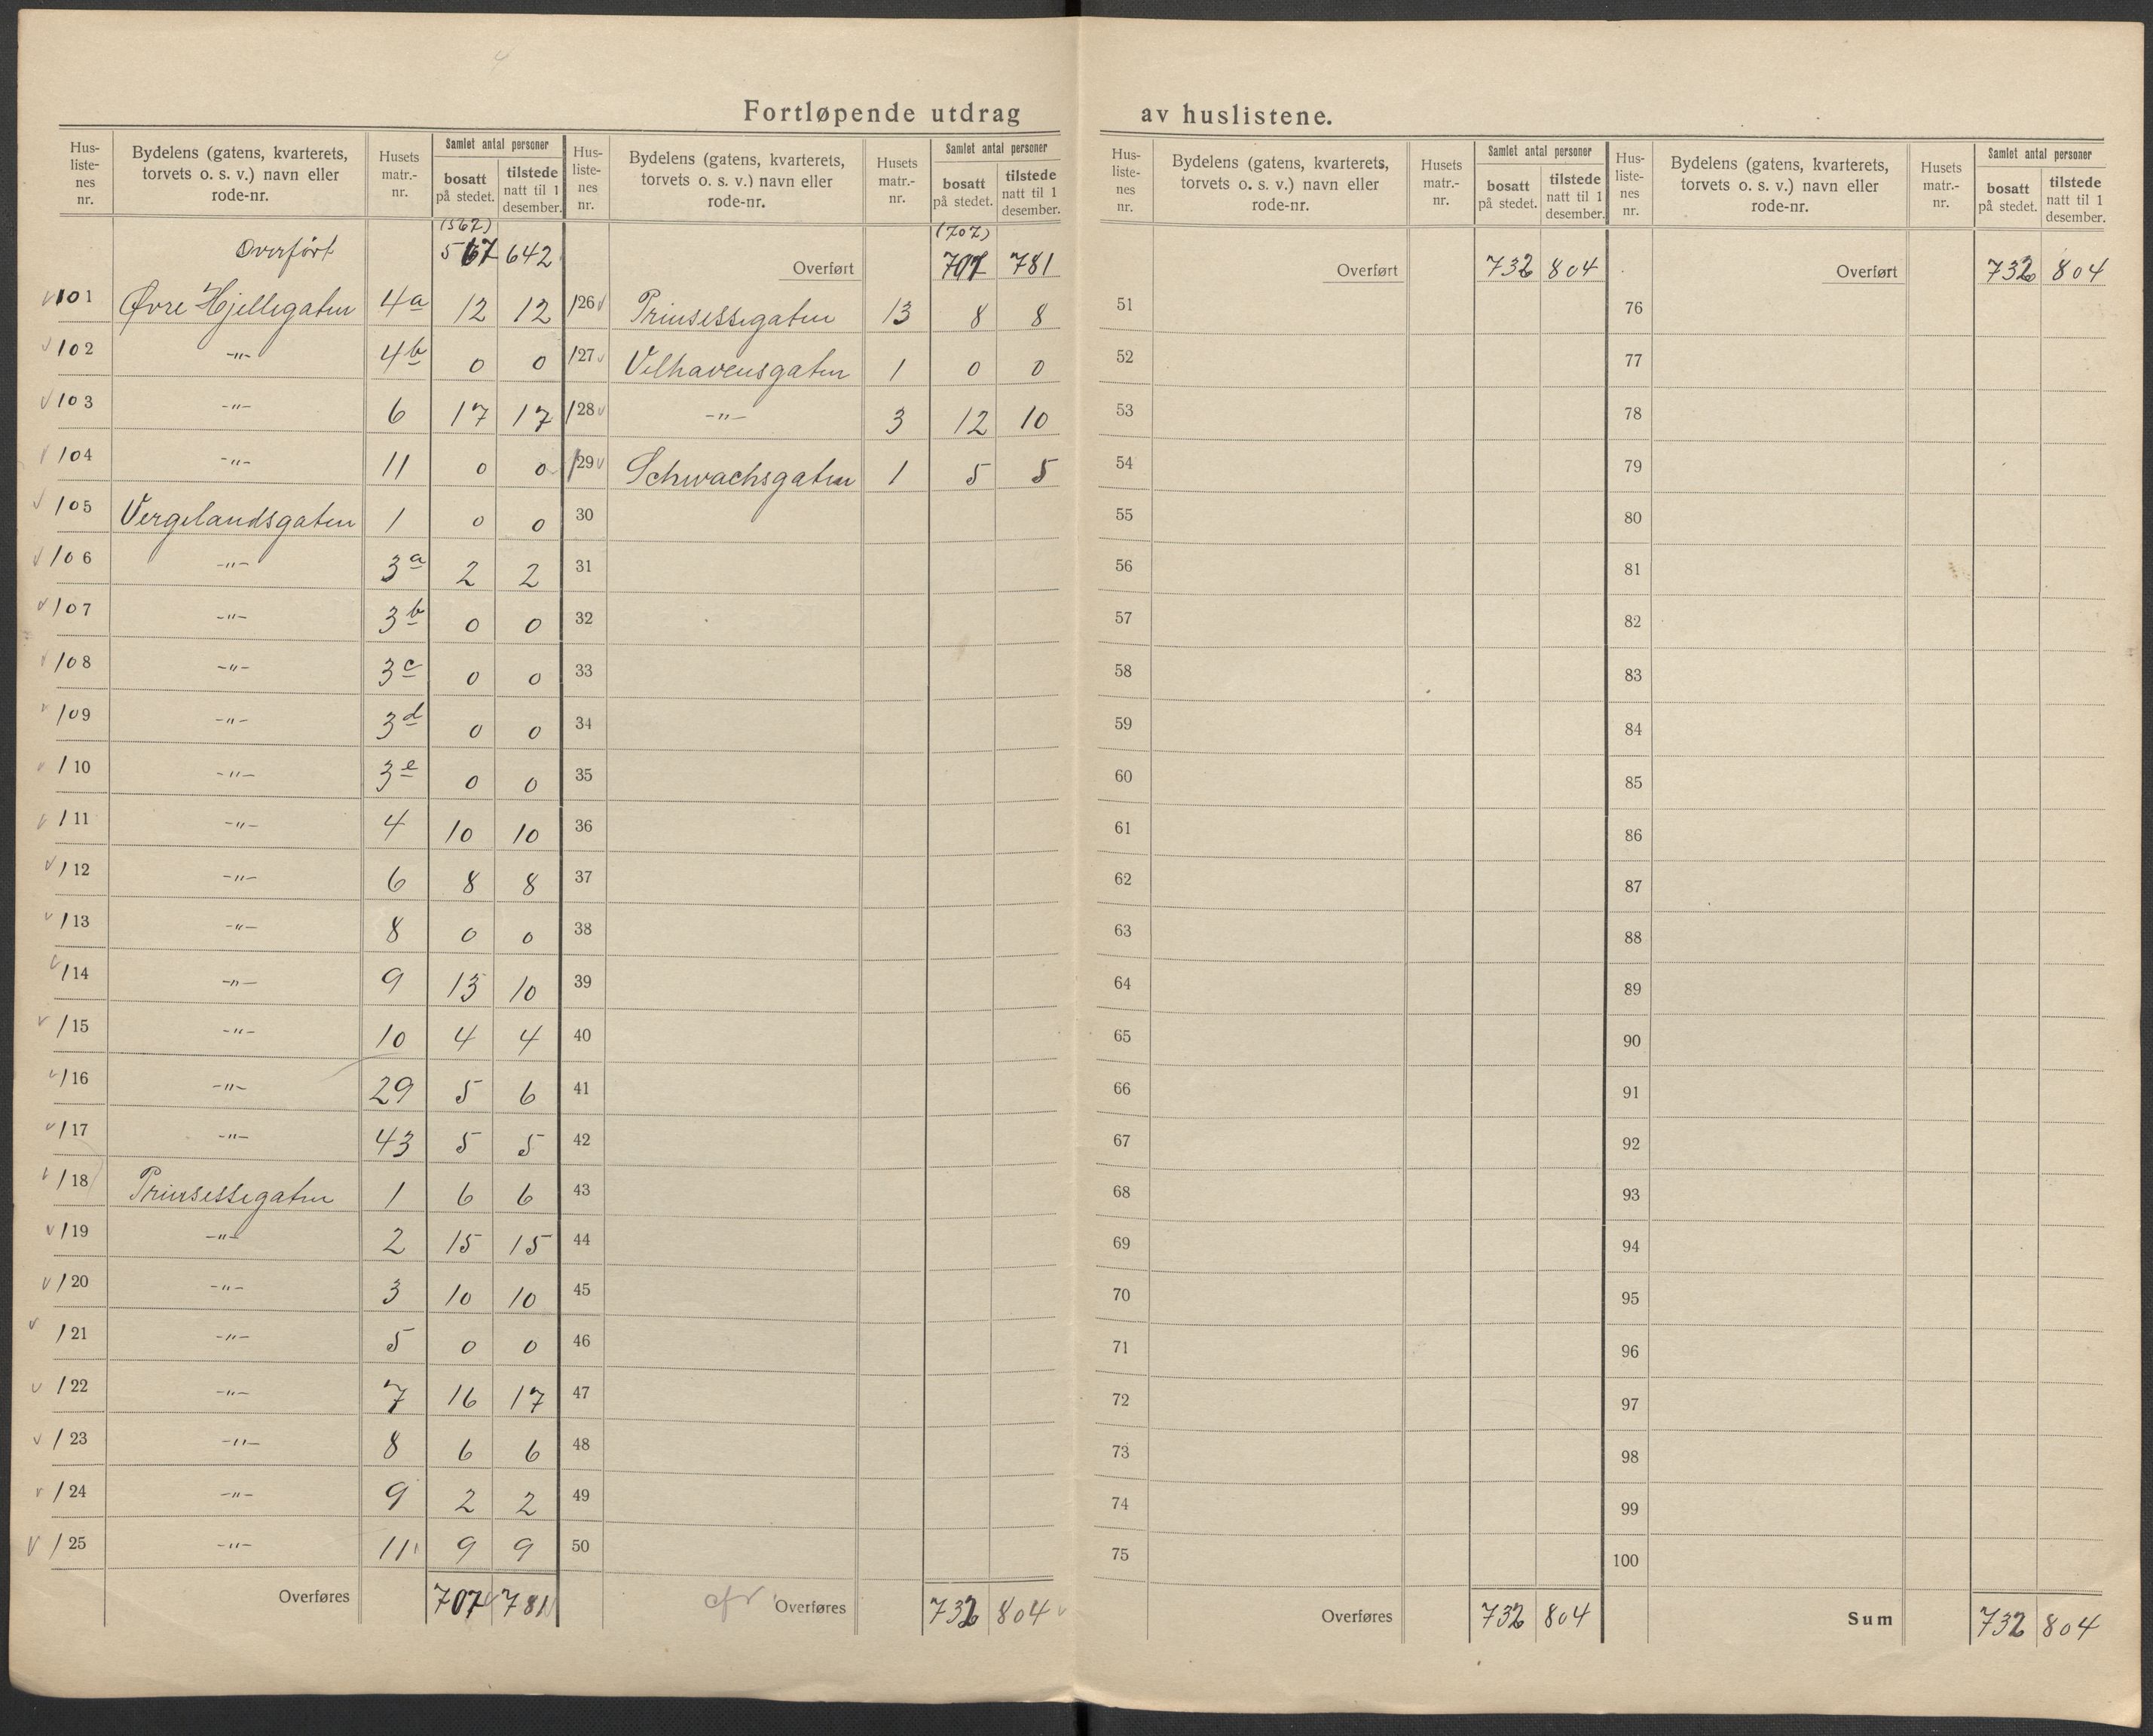 Fortløpende utdrag av huslistene.
Hus-liste-nes nr. | Bydelens (gatens, kvarterets, torvets o. s. v.) navn eller rode-nr. | Husets matr.-nr. | Samlet antal personer bosatt på stedet. | tilstede natt til 1 desember.
(567)
Overført 567 642
101 Øvre Hjellegaten 4a 12 12
102 -"- 4b 0 0
103 -"- 6 17 17
104 -"- 11 0 0
105 Vergelandsgaten 1 0 0
106 -"- 3a 2 2
107 -"- 3b 0 0
108 -"- 3c 0 0
109 -"- 3d 0 0
110 -"- 3e 0 0
111 -"- 4 10 10
112 -"- 6 8 8
113 -"- 8 0 0
114 -"- 9 13 10
115 -"- 10 4 4
116 -"- 29 5 6
117 -"- 43 5 5
118 Prinsessegaten 1 6 6
119 -"- 2 15 15
120 -"- 3 10 10
121 -"- 5 0 0
122 -"- 7 16 17
123 -"- 8 6 6
124 -"- 9 2 2
125 -"- 11 9 9
Overføres 707 781
Hus-liste-nes nr. | Bydelens (gatens, kvarterets, torvets o. s. v.) navn eller rode-nr. | Husets matr.-nr. | Samlet antal personer bosatt på stedet. | tilstede natt til 1 desember.
(707)
Overført 707 781
126 Prinsessegaten 13 8 8
127 Velhavensgaten 1 0 0
128 -"- 3 12 10
129 Schwachsgaten 1 5 5
30
31
32
33
34
35
36
37
38
39
40
41
42
43
44
45
46
47
48
49
50
Overføres 732 804
Hus-liste-nes nr. | Bydelens (gatens, kvarterets, torvets o. s. v.) navn eller rode-nr. | Husets matr.-nr. | Samlet antal personer bosatt på stedet. | tilstede natt til 1 desember.
Overført 732 804
51
52
53
54
55
56
57
58
59
60
61
62
63
64
65
66
67
68
69
70
71
72
73
74
75
Overføres 732 804
Hus-liste-nes nr. | Bydelens (gatens, kvarterets, torvets o. s. v.) navn eller rode-nr. | Husets matr.-nr. | Samlet antal personer bosatt på stedet. | tilstede natt til 1 desember.
Overført 732 804
76
77
78
79
80
81
82
83
84
85
86
87
88
89
90
91
92
93
94
95
96
97
98
99
100
Sum 732 804